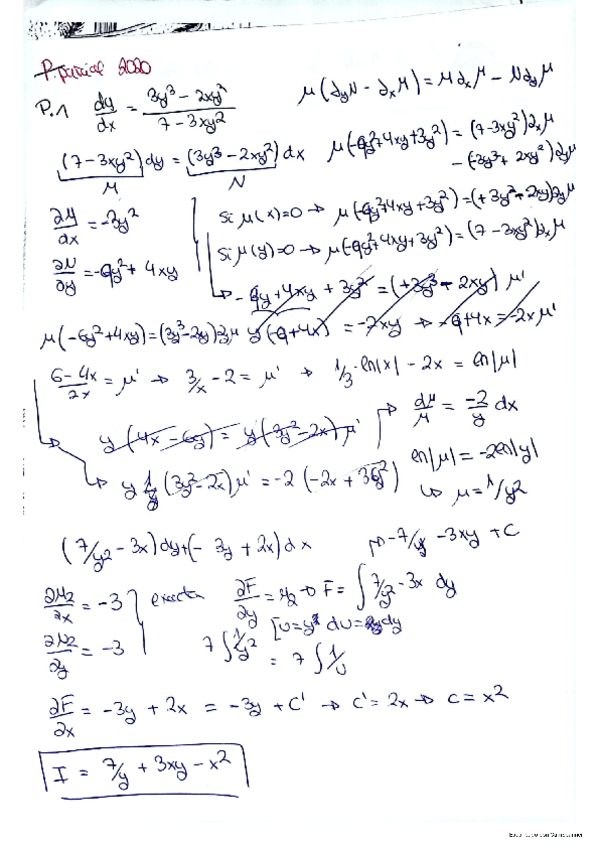 P. parcial 2020
P.1 dy/dx = (3y³ - 2xy²)/(7 - 3xy²)
μ(∂yN - ∂xM) = M∂xμ - N∂yμ
(7 - 3xy²)dy = (3y³ - 2xy²)dx
M N
μ(-9y²+4xy+3y²) = (7-3xy²)∂xμ
- (-3y³+ 2xy²)∂yμ
∂M/∂x = -3y²
∂N/∂y = -9y² + 4xy
Si μ(x)=0 → μ(-9y²+4xy+3y²) = (+3y³-2xy)∂yμ
Si μ(y)=0 → μ(-9y²+4xy+3y²) = (7 - 3xy²)∂xμ
→ - 9y + 4xy + 3y² = (+3y³ - 2xy) μ'
μ(-6y²+4xy) = (3y³-2y)∂yμ y(-6+4x) = -2xy → -6+4x = -2x μ'
6-4x/2x = μ' → 3/x - 2 = μ' → 1/3·ln|x| - 2x = ln|μ|
y(4x - 6y) = y(3y² - 2x) μ'
→ dμ/μ = -2/y dx
y 1/μ (3y²-2x)μ' = -2(-2x + 3y²)
ln|μ| = -2ln|y|
→ μ = 1/y²
(7/y² - 3x)dy + (- 3y + 2x)dx
-7/y - 3xy + C
∂M2/∂x = -3
∂N2/∂y = -3
exacta
∂F/∂y = M2 → F = ∫ 7/y² - 3x dy
7∫1/y² [u=y² du=2ydy
= 7∫1/u
∂F/∂x = -3y + 2x = -3y + C' → C' = 2x → C = x²
I = 7/y + 3xy - x²